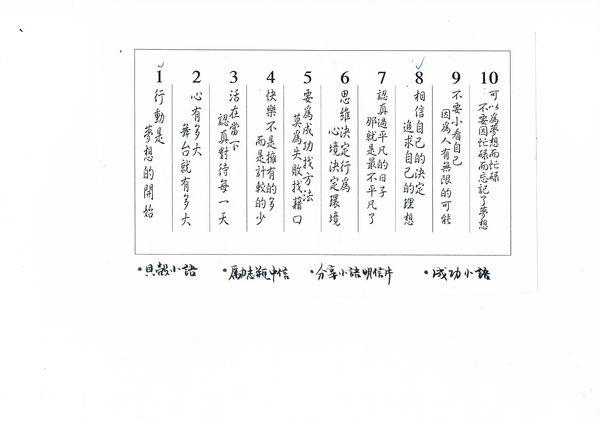 1
行動是
夢想的開始
2
心有多大
舞台就有多大
3
活在當下
認真對待每一天
4
快樂不是擁有的多
而是計較的少
5
要為成功找方法
莫為失敗找藉口
6
思維決定行為
心境決定環境
7
認真過平凡的日子
那就是最不平凡了
8
相信自己的決定
追求自己的理想
9
不要小看自己
因為人有無限的可能
10
可以為夢想而忙碌
不要因忙碌而忘記了夢想
•貝殼小語 •勵志瓶中信 •分享小語明信片 •成功小語